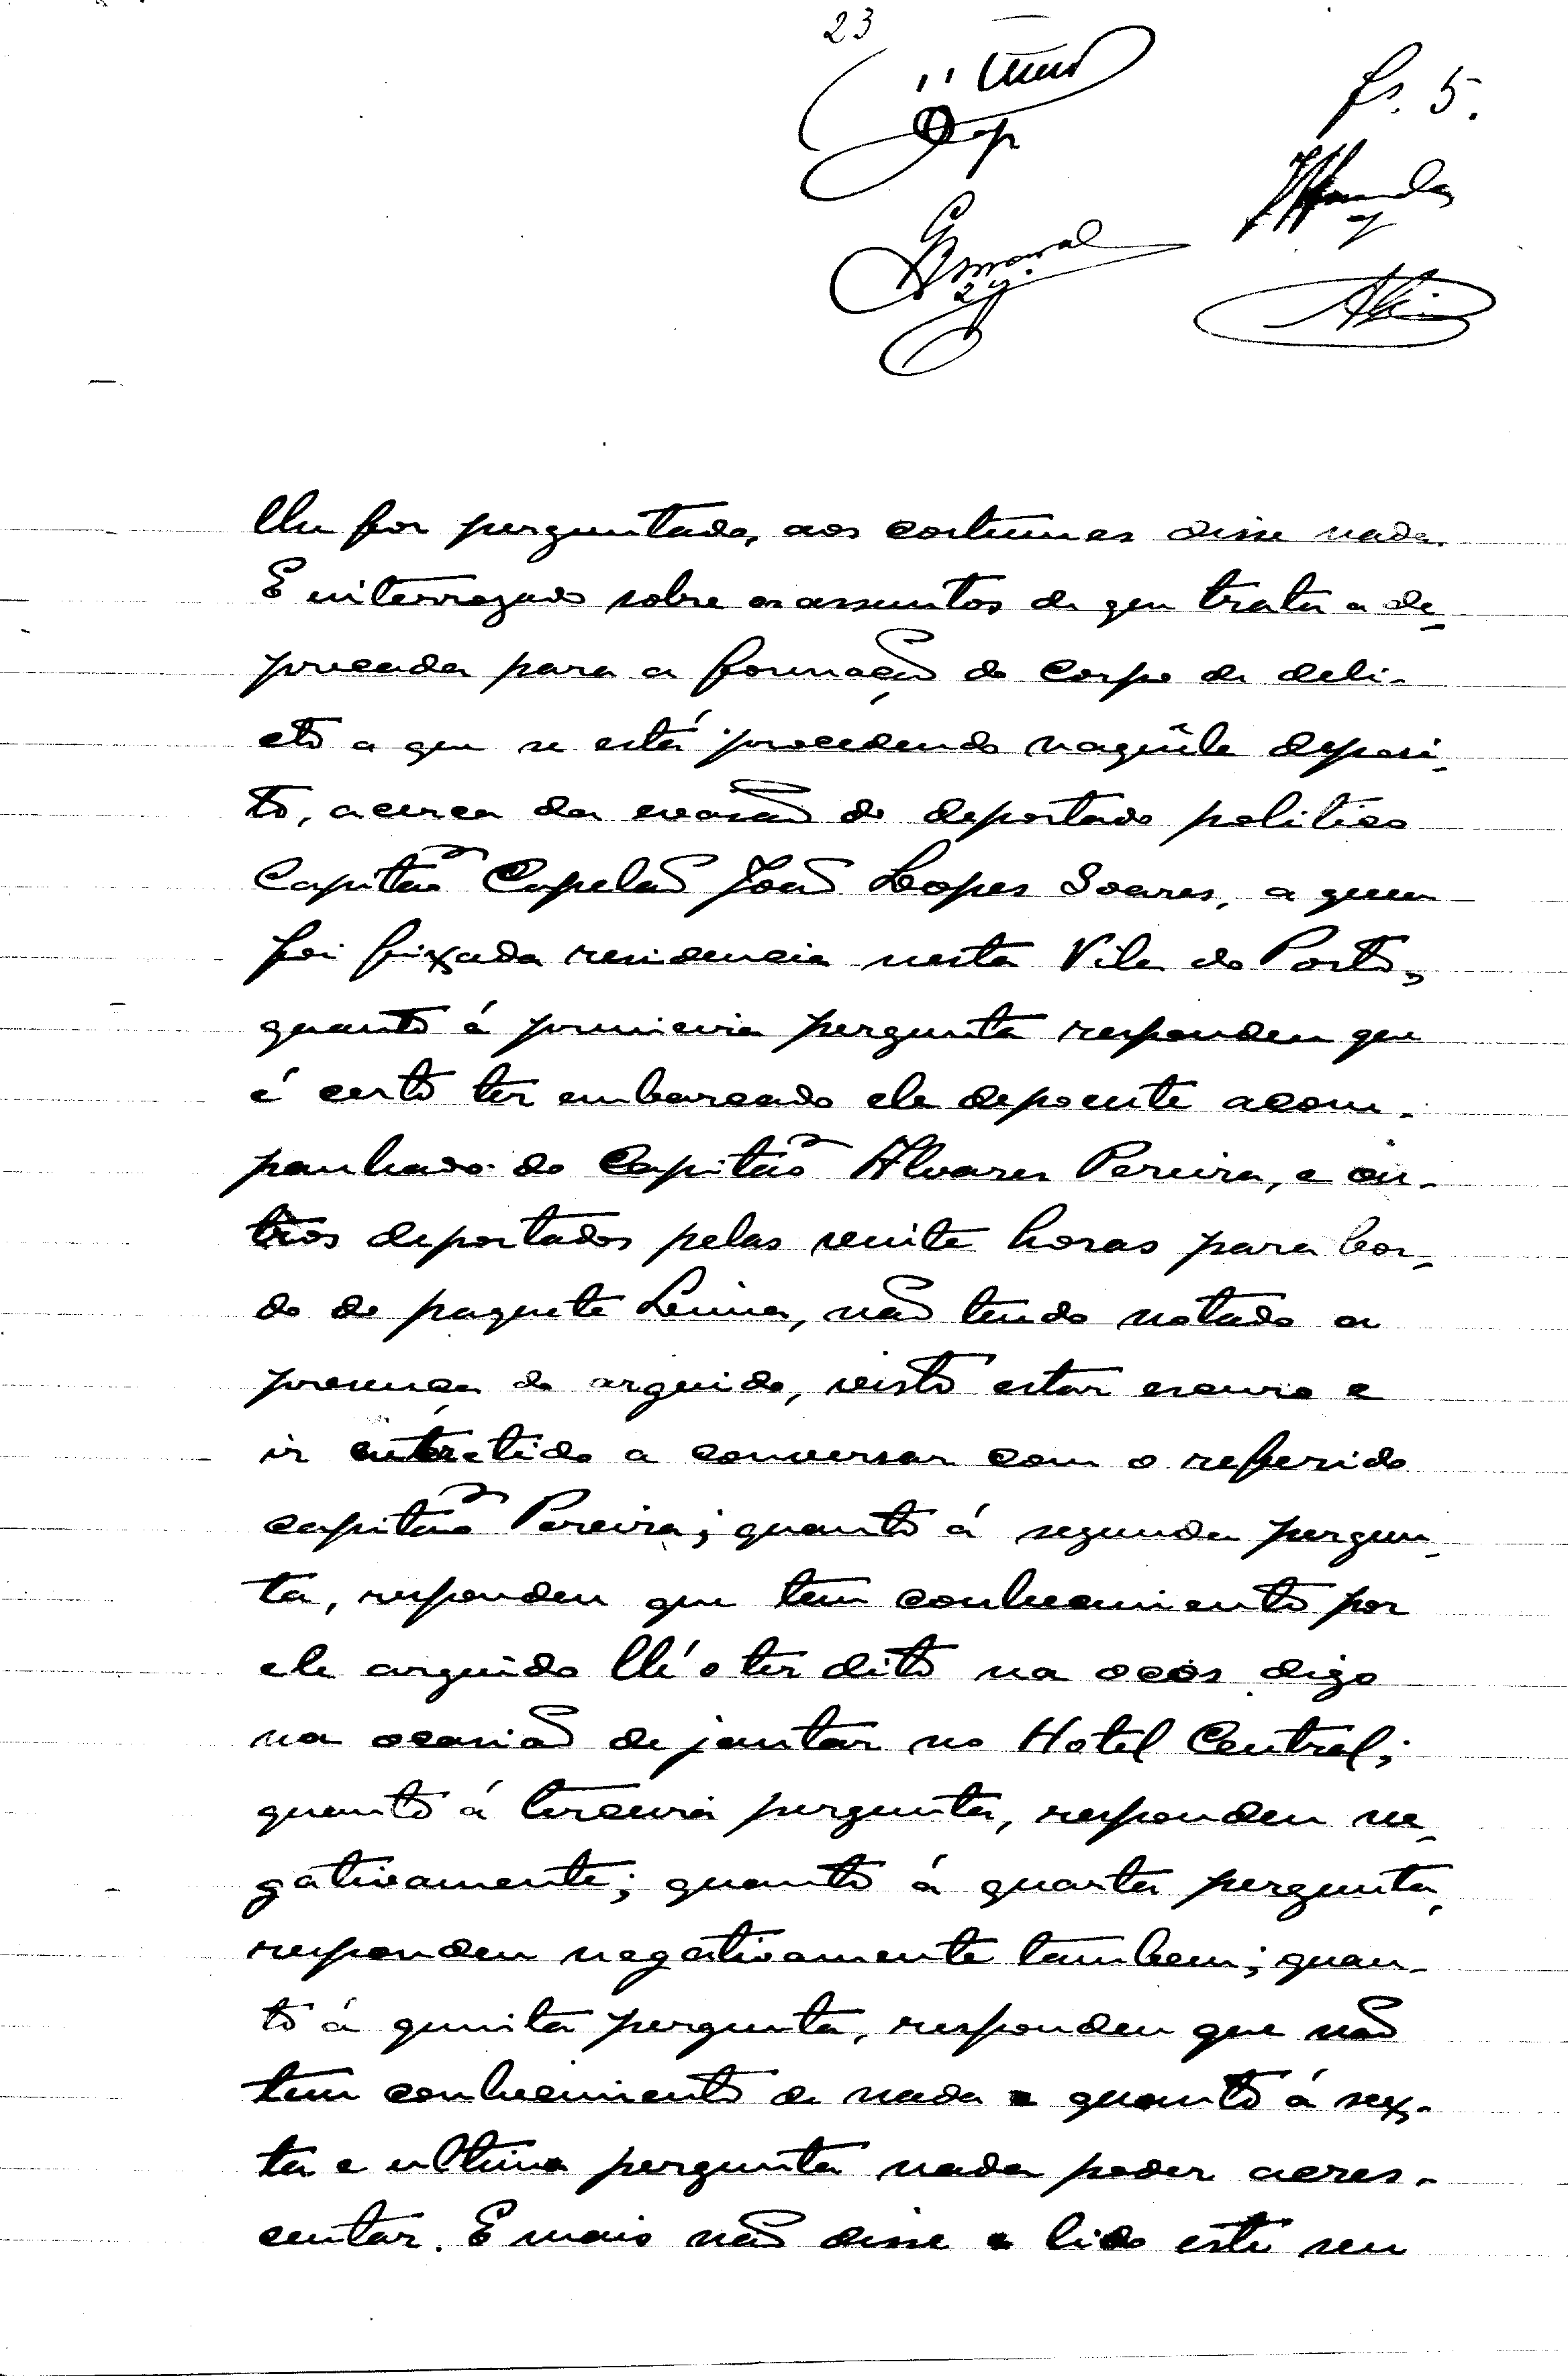 23
fs. 5.
lhe for perguntado, aos costumes disse nada.
E interrogado sobre os assuntos de que trata a de-
precada para a formação do corpo de deli-
cto a que se está procedendo naquêle deposi-
to, acerca da evasão do deportado politico
Capitão Capelão João Lopes Soares, a quem
foi fixada residencia nesta Vila do Porto,
quanto á primeira pergunta respondeu que
é certo ter embarcado ele depoente acom-
panhado do Capitão Alvares Pereira, e ou-
tros deportados pelas vinte horas para bor-
do do paquete Lima, não tendo notado a
presença do arguido, visto estar escuro e
ir entretido a conversar com o referido
capitão Pereira; quanto á segunda pergun-
ta, respondeu que tem conhecimento por
ele arguido lh'o ter dito na ocas digo
na ocasião de jantar no Hotel Central;
quanto á terceira pergunta, respondeu ne-
gativamente; quanto á quarta pergunta,
respondeu negativamente tambem; quan-
to á quinta pergunta, respondeu que não
tem conhecimento de nada e quanto á sex-
ta e ultima pergunta nada poder acres-
centar. E mais não disse e lido este seu